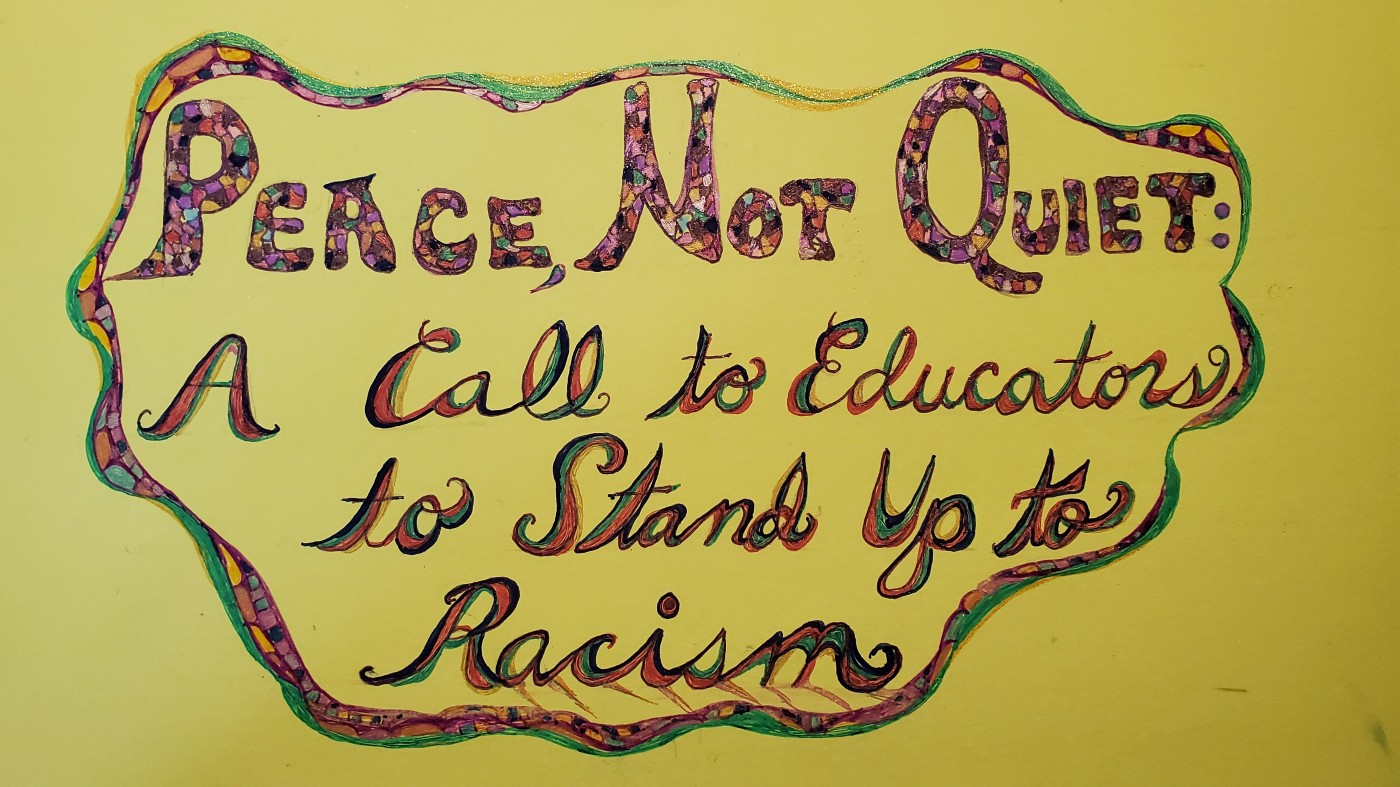 Peace, Not Quiet:
A Call to Educators
to Stand Up to
Racism